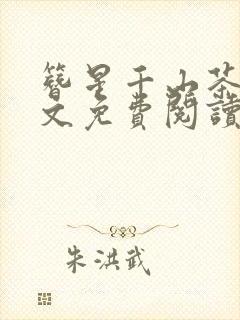 簪星千山茶
文免費閱讀
朱洪武